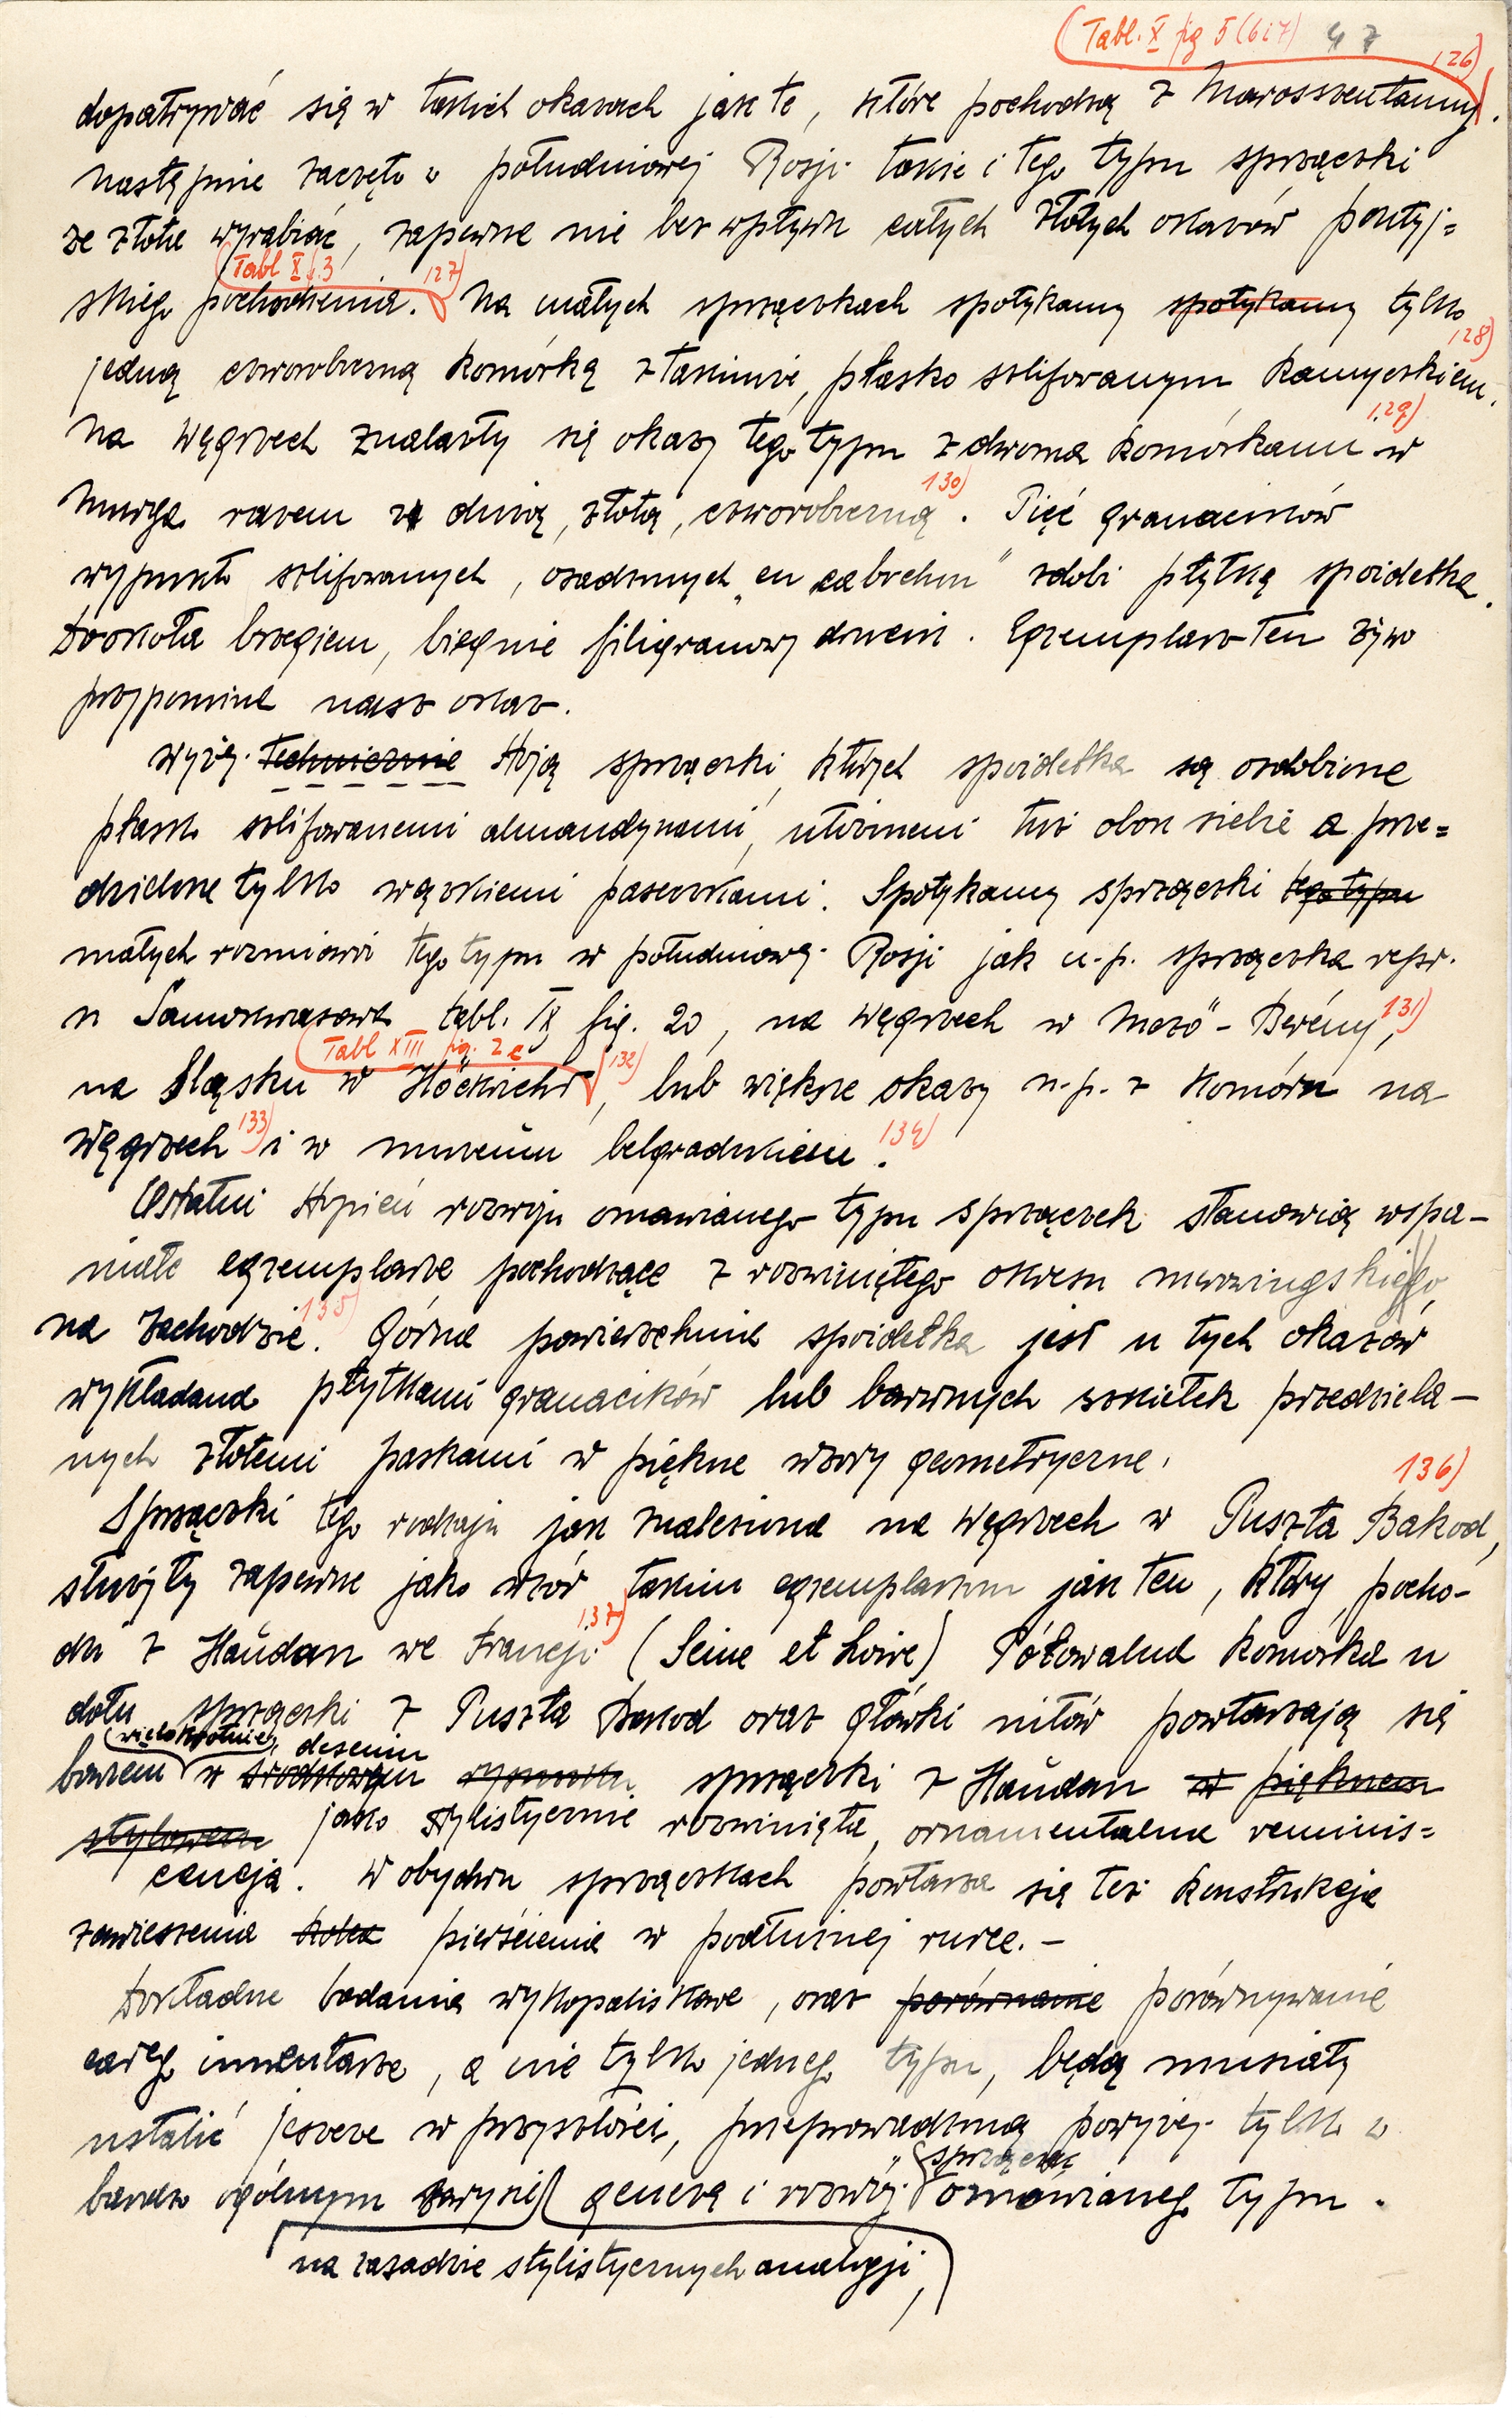 (Tabl. X fig 5 (6 i 7) 47
dopatrywać się w takich okazach jak te, które pochodzą z Marosszentanny. 126)
Następnie zaczęto w południowej Rosji takie i tego typu sprzączki
ze złota wyrabiać, zapewne nie bez wpływu całych złotych okazów pontyj=
(Tabl X f. 3 127)
skiego pochodzenia. Na małych sprzączkach spotykamy spotykamy tylko
jedną czworoboczną komórkę z takimże, płasko szlifowanym kamyczkiem. 128)
Na Węgrzech znalazły się okazy tego typu z dwoma komórkami 129) w
Murga razem z dużą, złotą, czworoboczną 130). Pięć granacików
wypukło szlifowanych, osadzonych „en cabochon" zdobi płytkę spoidełka.
Dookoła brzegiem, biegnie filigranowy drucik. Egzemplarz ten żywo
przypomina nasz okaz.
Wyżej technicznie stoją sprzączki, których spoidełka są ozdobione
płasko szlifowanemi almandynami, utożonemi tuż obok siebie a prze=
dzielone tylko wązkiemi paseczkami. Spotykamy sprzączki tego typu
małych rozmiarów tego typu w południowej Rosji jak n.p. sprzączka repr.
u Samokwasowa tabl. IX fig. 20, na Węgrzech w Mezö-Berény 131),
(Tabl XIII fig. 2 a
na Śląsku w Höckricht 132), lub większe okazy n.p. z Komórn na
Węgrzech 133) i w muzeum belgradzkiem. 134)
Ostatni stopień rozwoju omawianego typu sprzączek stanowią wspa-
niałe egzemplarze, pochodzące z rozwiniętego okresu merowingskiego,
na zachodzie. 135) Górna powierzchnia spoidełka jest u tych okazów
wykładana płytkami granacików lub barwnych szkiełek przedziela-
nych złotemi paskami w piękne wzory geometryczne.
Sprzączki tego rodzaju jak znaleziona na Węgrzech w Puszta Bakod, 136)
służyły zapewne jako wzór takim egzemplarzom jak ten, który pocho-
dzi z Haûdan we Francji 137) (Seine et Loire) Półowalna komórka u
dołu sprzączki z Puszta Bakod oraz główki nitów powtarzają się
wielokrotnie, deseniu
bowiem w środkowym rysunku sprzączki z Haûdan w pięknem
stylowem jako stylistycznie rozwinięta, ornamentalna reminis=
cencja. W obydwu sprzączkach powtarza się też konstrukcja
zawieszenia kolca pierścienia w podłużnej rurce. -
Dokładne badania wykopaliskowe, oraz porównanie porównywanie
całego inwentarza, a nie tylko jednego typu, będą musiały
ustalić jeszcze w przyszłości, przeprowadzoną powyżej tylko w
sprzączek
bardzo ogólnym zarysie genezą i rozwój omawianego typu.
na zasadzie stylistycznych analogji,